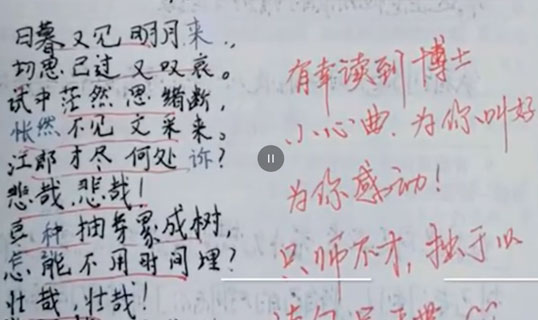 日暮又见明月来，
切思已过又叹哀。
试中茫然思绪断，
怅然不见文采来。
江郎才尽何处诉？
悲哉，悲哉！
良种抽芽累成树，
怎能不用时间理？
壮哉，壮哉！
有幸读到博士
小心曲，为你叫好
为你感动！
只师不才，拙于以